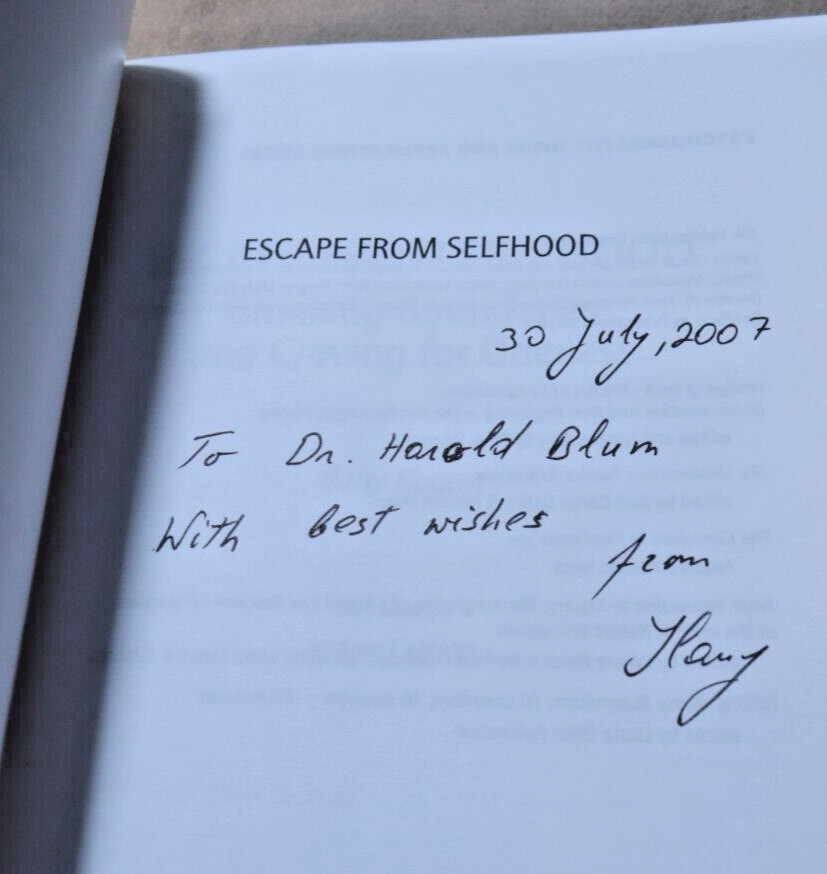 ESCAPE FROM SELFHOOD
30 July, 2007
To Dr. Harold Blum
With best wishes
from
Ilany